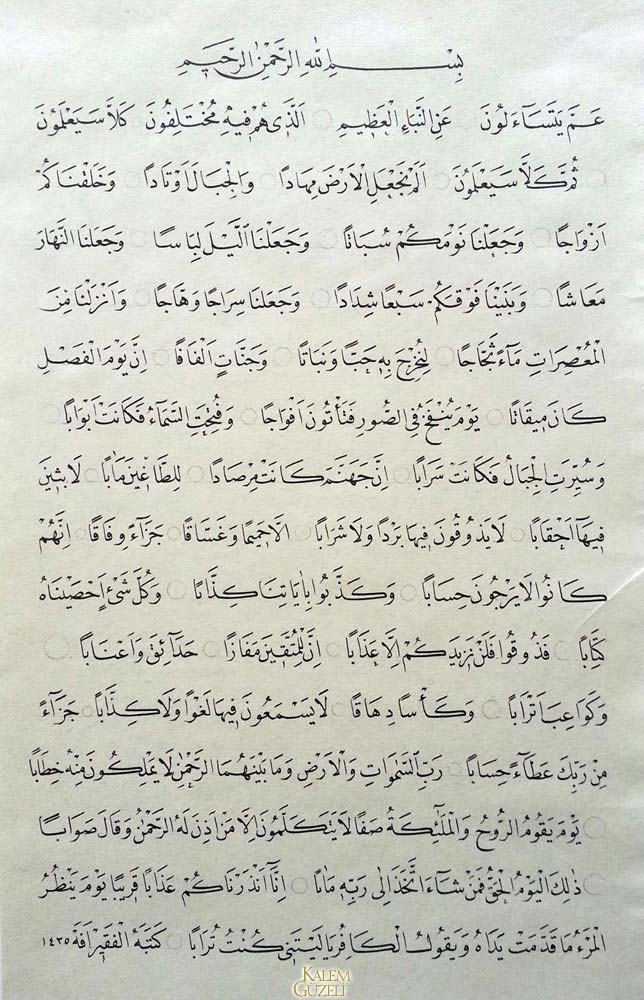 بِسْمِ اللهِ الرَّحْمٰنِ الرَّحِيمِ
عَمَّ يَتَسَاءَلُونَ ○ عَنِ النَّبَاِ الْعَظِيمِ ○ اَلَّذِى هُمْ فِيهِ مُخْتَلِفُونَ ○ كَلَّا سَيَعْلَمُونَ
○ ثُمَّ كَلَّا سَيَعْلَمُونَ ○ اَلَمْ نَجْعَلِ الْاَرْضَ مِهَادًا ○ وَالْجِبَالَ اَوْتَادًا ○ وَخَلَقْنَاكُمْ
اَزْوَاجًا ○ وَجَعَلْنَا نَوْمَكُمْ سُبَاتًا ○ وَجَعَلْنَا الَّيْلَ لِبَاسًا ○ وَجَعَلْنَا النَّهَارَ
مَعَاشًا ○ وَبَنَيْنَا فَوْقَكُمْ سَبْعًا شِدَادًا ○ وَجَعَلْنَا سِرَاجًا وَهَّاجًا ○ وَاَنْزَلْنَا مِنَ
الْمُعْصِرَاتِ مَاءً ثَجَّاجًا ○ لِنُخْرِجَ بِهِ حَبًّا وَنَبَاتًا ○ وَجَنَّاتٍ اَلْفَافًا ○ اِنَّ يَوْمَ الْفَصْلِ
كَانَ مِيقَاتًا ○ يَوْمَ يُنْفَخُ فِى الصُّورِ فَتَأْتُونَ اَفْوَاجًا ○ وَفُتِحَتِ السَّمَاءُ فَكَانَتْ اَبْوَابًا ○
وَسُيِّرَتِ الْجِبَالُ فَكَانَتْ سَرَابًا ○ اِنَّ جَهَنَّمَ كَانَتْ مِرْصَادًا ○ لِلطَّاغِينَ مَاٰبًا ○ لَابِثِينَ
فِيهَا اَحْقَابًا ○ لَا يَذُوقُونَ فِيهَا بَرْدًا وَلَا شَرَابًا ○ اِلَّا حَمِيمًا وَغَسَّاقًا ○ جَزَاءً وِفَاقًا ○ اِنَّهُمْ
كَانُوا لَا يَرْجُونَ حِسَابًا ○ وَكَذَّبُوا بِاٰيَاتِنَا كِذَّابًا ○ وَكُلَّ شَىْءٍ اَحْصَيْنَاهُ
كِتَابًا ○ فَذُوقُوا فَلَنْ نَزِيدَكُمْ اِلَّا عَذَابًا ○ اِنَّ لِلْمُتَّقِينَ مَفَازًا ○ حَدَائِقَ وَاَعْنَابًا ○
وَكَوَاعِبَ اَتْرَابًا ○ وَكَأْسًا دِهَاقًا ○ لَا يَسْمَعُونَ فِيهَا لَغْوًا وَلَا كِذَّابًا ○ جَزَاءً
مِنْ رَبِّكَ عَطَاءً حِسَابًا ○ رَبِّ السَّمٰوَاتِ وَالْاَرْضِ وَمَا بَيْنَهُمَا الرَّحْمٰنِ لَا يَمْلِكُونَ مِنْهُ خِطَابًا
○ يَوْمَ يَقُومُ الرُّوحُ وَالْمَلٰئِكَةُ صَفًّا لَا يَتَكَلَّمُونَ اِلَّا مَنْ اَذِنَ لَهُ الرَّحْمٰنُ وَقَالَ صَوَابًا
○ ذٰلِكَ الْيَوْمُ الْحَقُّ فَمَنْ شَاءَ اتَّخَذَ اِلٰى رَبِّهِ مَاٰبًا ○ اِنَّا اَنْذَرْنَاكُمْ عَذَابًا قَرِيبًا يَوْمَ يَنْظُرُ
الْمَرْءُ مَا قَدَّمَتْ يَدَاهُ وَيَقُولُ الْكَافِرُ يَا لَيْتَنِى كُنْتُ تُرَابًا ○ كَتَبَهُ الْفَقِيرُ ١٤٣٥
KALEM
GÜZELİ